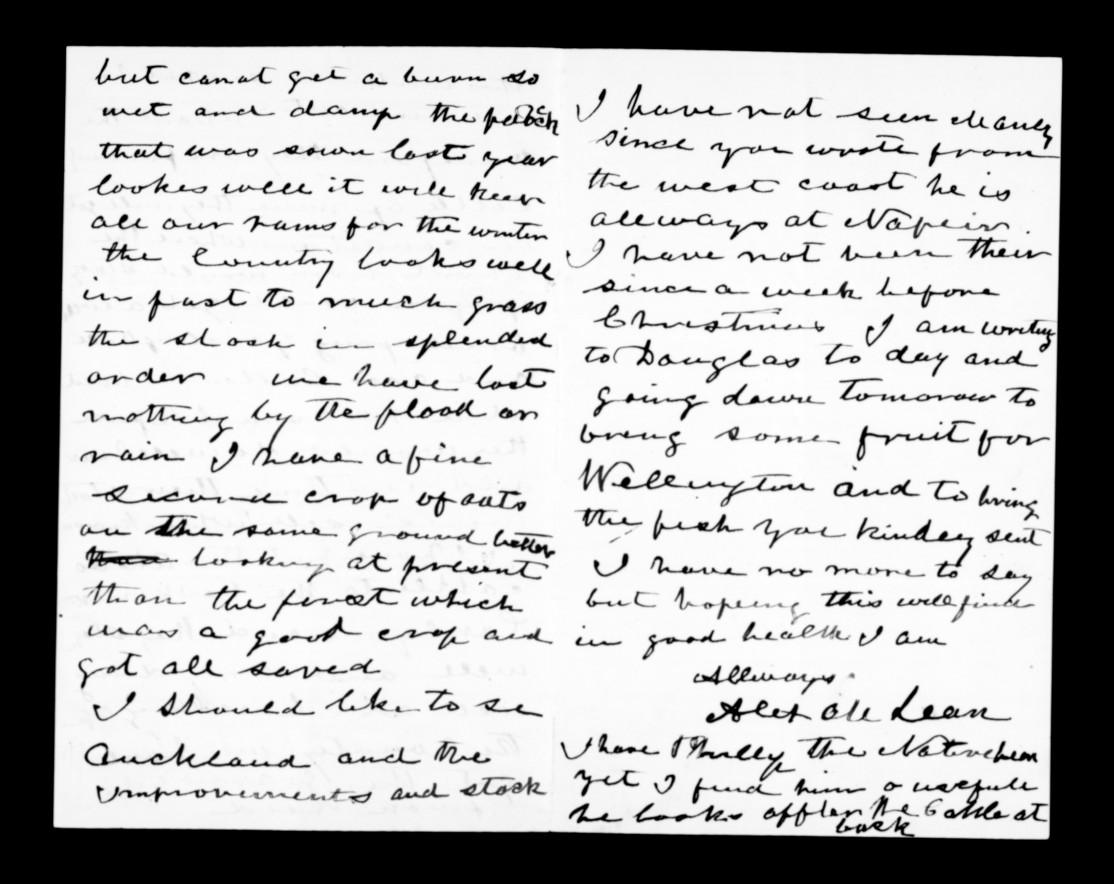 but canot get a burn so
wet and damp the patch
that was sown last year
lookes well it will keep
all our rams for the winter
the Country looks well
in fact to much grass
the stock in splended
order we have lost
nothing by the flood or
rain I have a fine
second crop of oats
on the same ground better
looking at present
than the first which
was a good crop and
got all saved
I should like to se
Auckland and the
Improvements and stock
I have not seen Manly
since you wrote from
the west coast he is
allways at Napeir
I have not been their
since a week before
Christmas I am writing
to Douglas to day and
going down tomorow to
bring some fruit for
Wellington and to bring
the fish you kindley sent
I have no more to say
but hopeing this will find
in good health I am
Allways
Alex McLean
I have the Native hear
yet I find him a usefull
he looks affter the Cattle at
back